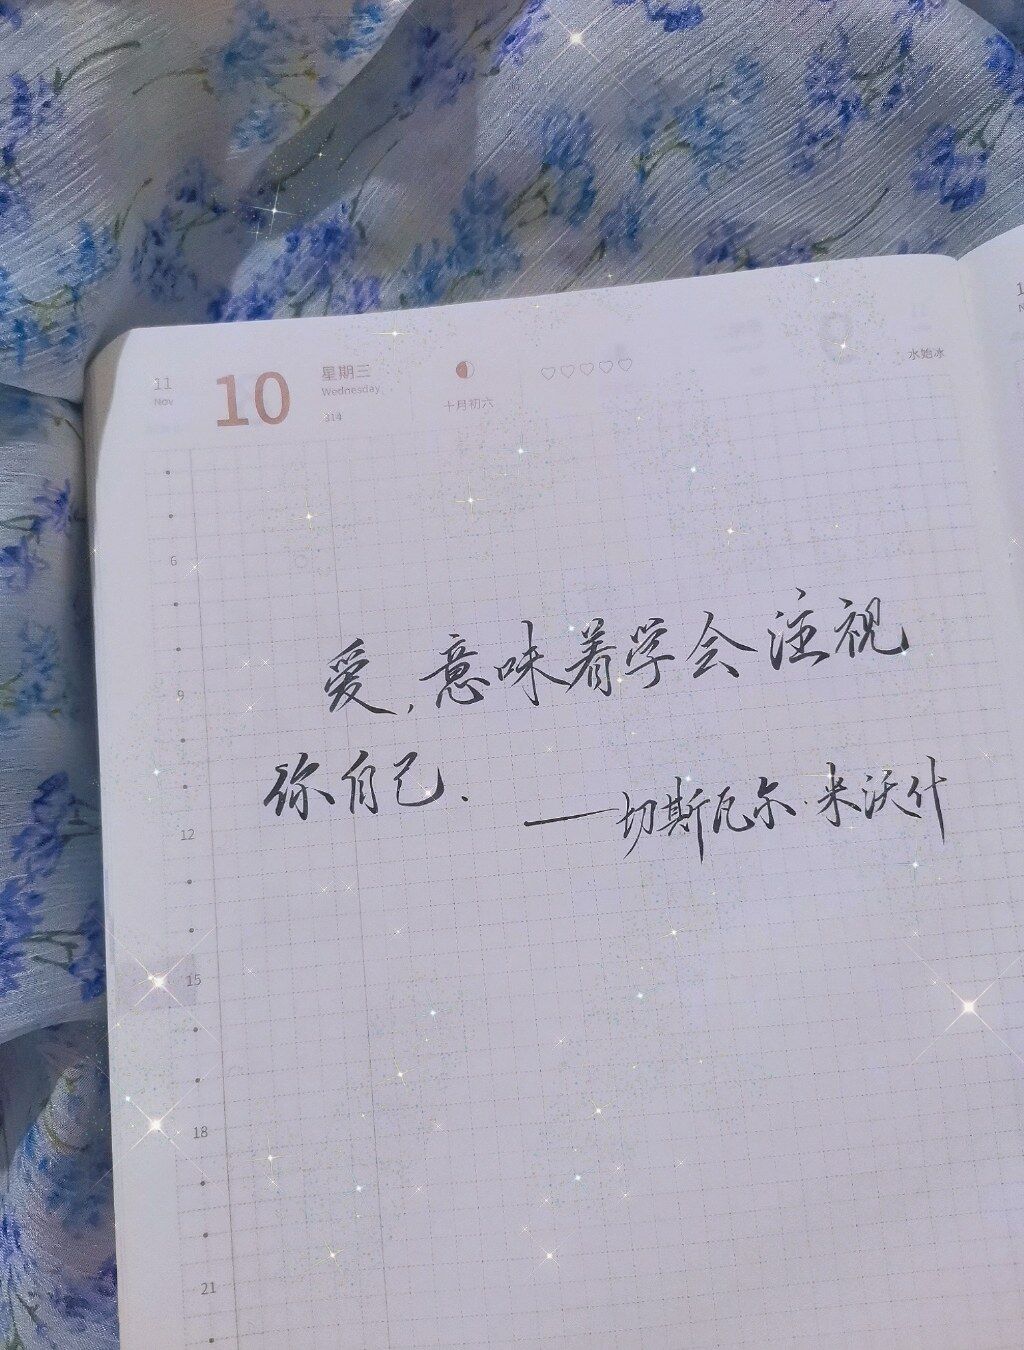 11
Nov
10
星期三
Wednesday
314
十月初六
水始冰
6
9
12
15
18
21
爱,意味着学会注视
你自己.
——切斯瓦尔·米沃什